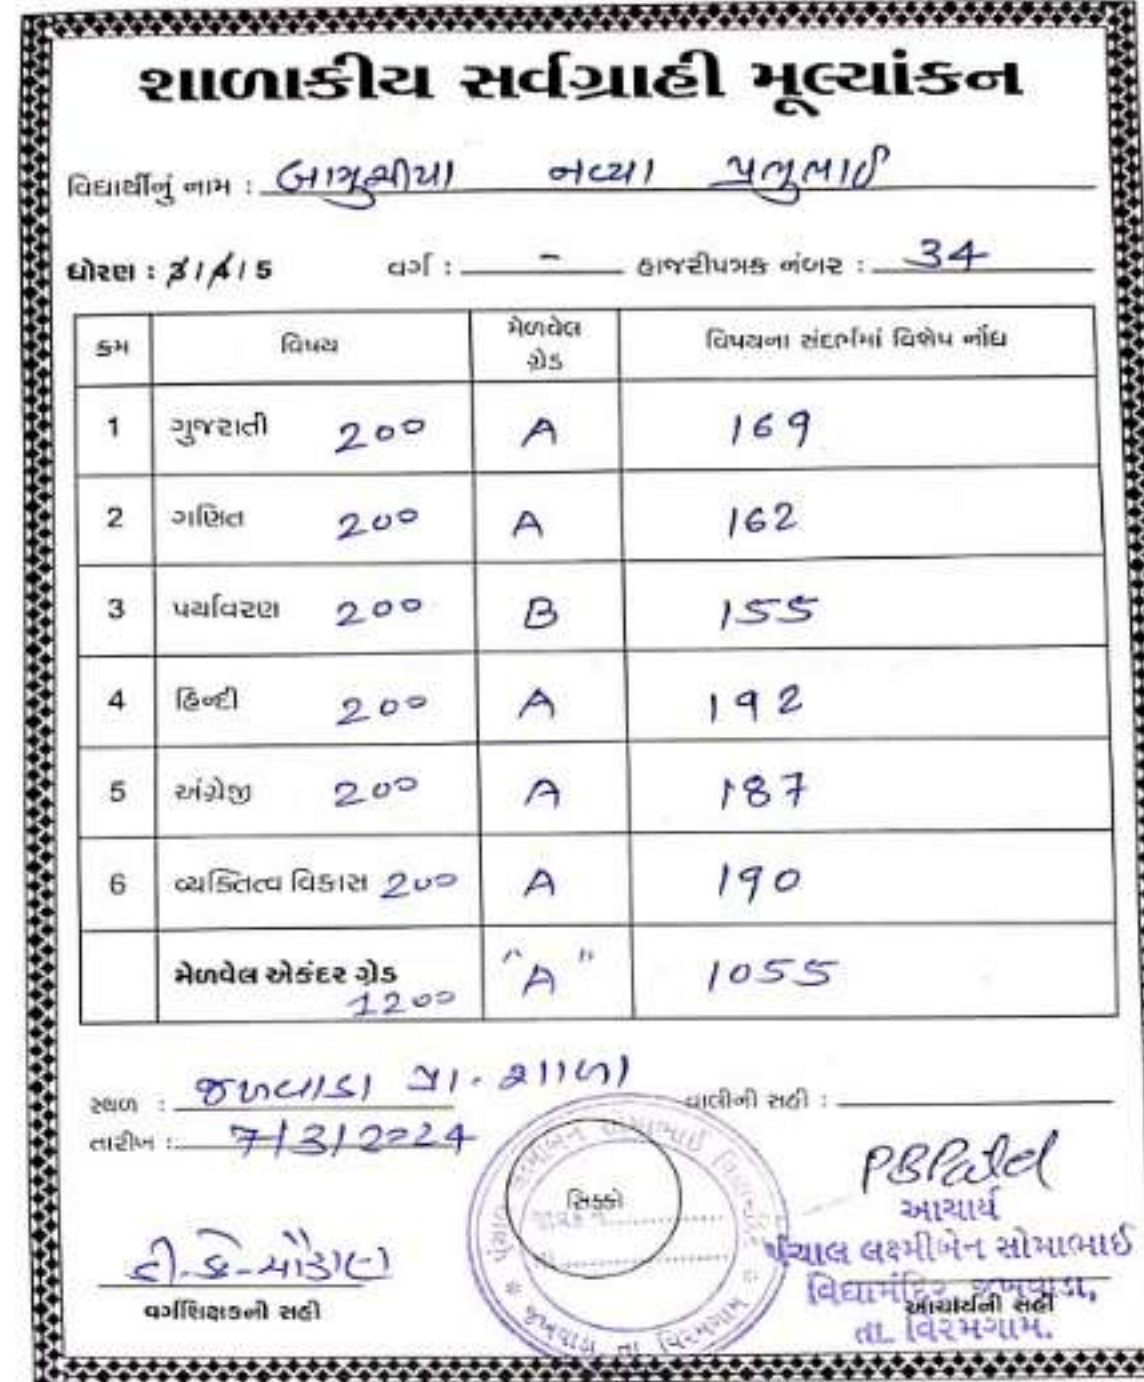 શાળાકીય સર્વગ્રાહી મૂલ્યાંકન
વિદ્યાર્થીનું નામ : નવ્યા પ્રભુભાઈ
ધોરણ : 3 / 4 / 5 વર્ગ : - હાજરીપત્રક નંબર : 34
ક્રમ વિષય મેળવેલ ગ્રેડ વિષયના સંદર્ભમાં વિશેષ નોંધ
1 ગુજરાતી 200 A 169
2 ગણિત 200 A 162
3 પર્યાવરણ 200 B 155
4 હિન્દી 200 A 192
5 અંગ્રેજી 200 A 187
6 વ્યક્તિત્વ વિકાસ 200 A 190
મેળવેલ એકંદર ગ્રેડ 1200 "A" 1055
સ્થળ : જખવાડા પ્રા. શાળા વાલીની સહી :
તારીખ : 7/3/2024
સિક્કો
PBPatel
આચાર્ય
પંચાલ લક્ષ્મીબેન સોમાભાઈ
વિદ્યામંદિર જખવાડા,
તા. વિરમગામ.
વર્ગશિક્ષકની સહી આચાર્યની સહી